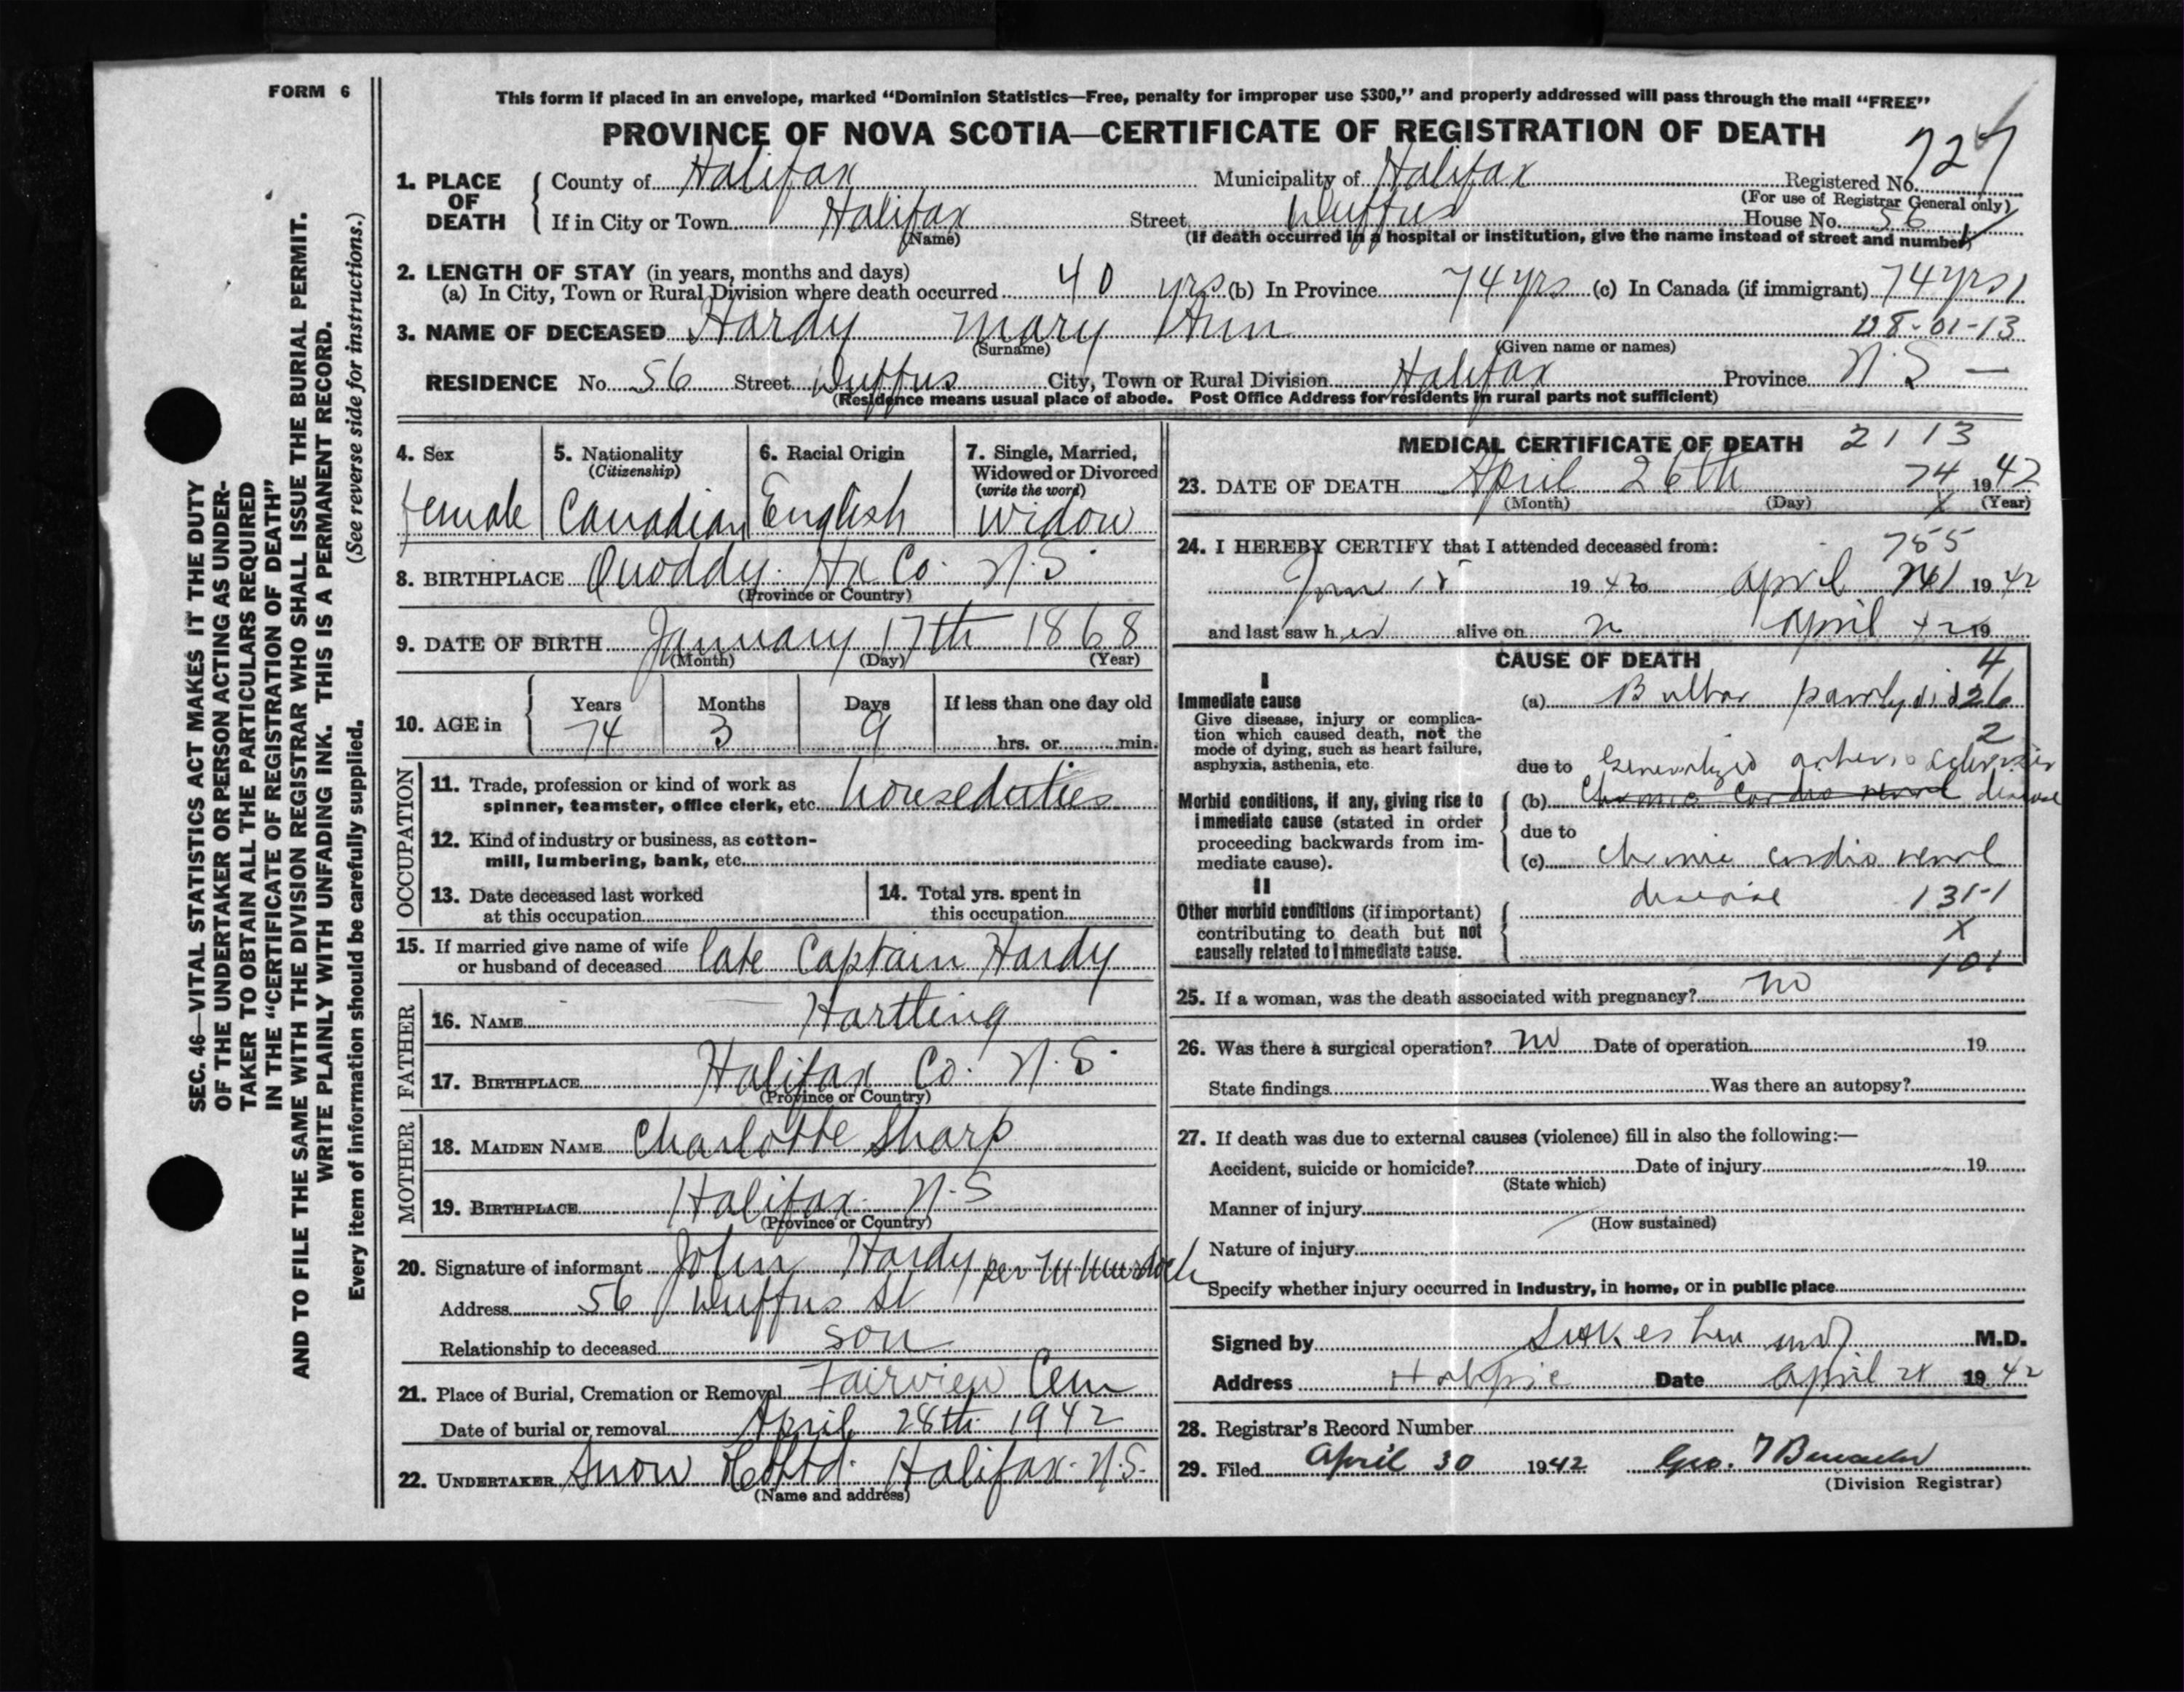 FORM 6
This form if placed in an envelope, marked “Dominion Statistics—Free, penalty for improper use $300,” and properly addressed will pass through the mail “FREE”
PROVINCE OF NOVA SCOTIA—CERTIFICATE OF REGISTRATION OF DEATH
727
1. PLACE OF DEATH { County of Halifax Municipality of Halifax Registered No.
(For use of Registrar General only)
If in City or Town Halifax Street Duffus House No. 56
(Name) (If death occurred in a hospital or institution, give the name instead of street and number)
2. LENGTH OF STAY (in years, months and days)
(a) In City, Town or Rural Division where death occurred 40 yrs (b) In Province 74 yrs (c) In Canada (if immigrant) 74 yrs
3. NAME OF DECEASED Hardy Mary Ann
(Surname) (Given name or names)
RESIDENCE No. 56 Street Duffus City, Town or Rural Division Halifax Province N.S —
(Residence means usual place of abode. Post Office Address for residents in rural parts not sufficient)
4. Sex
female
5. Nationality
(Citizenship)
Canadian
6. Racial Origin
English
7. Single, Married,
Widowed or Divorced
(write the word)
Widow
8. BIRTHPLACE Quoddy. Hx Co. N.S.
(Province or Country)
9. DATE OF BIRTH January 17th 1868
(Month) (Day) (Year)
10. AGE in { Years Months Days If less than one day old
74 3 9 hrs. or min.
OCCUPATION
11. Trade, profession or kind of work as
spinner, teamster, office clerk, etc. houseduties
12. Kind of industry or business, as cotton-
mill, lumbering, bank, etc.
13. Date deceased last worked
at this occupation
14. Total yrs. spent in
this occupation
15. If married give name of wife
or husband of deceased late Captain Hardy
FATHER
16. NAME Hartling
17. BIRTHPLACE Halifax Co. N.S.
(Province or Country)
MOTHER
18. MAIDEN NAME Charlotte Sharp
19. BIRTHPLACE Halifax. N.S
(Province or Country)
20. Signature of informant John Hardy per
Address 56 Duffus St
Relationship to deceased son
21. Place of Burial, Cremation or Removal Fairview Cem
Date of burial or removal April 28th 1942
22. UNDERTAKER Snow Co Ltd. Halifax. N.S.
(Name and address)
MEDICAL CERTIFICATE OF DEATH 2113
23. DATE OF DEATH April 26th 74 1942
(Month) (Day) X (Year)
24. I HEREBY CERTIFY that I attended deceased from:
755
Jan 1942 to April 1942
and last saw her alive on April 19
CAUSE OF DEATH
I
Immediate cause
Give disease, injury or complica-
tion which caused death, not the
mode of dying, such as heart failure,
asphyxia, asthenia, etc.
4
(a) Bulbar paralysis 26
2
due to Generalized arterio sclerosis
Morbid conditions, if any, giving rise to
immediate cause (stated in order
proceeding backwards from im-
mediate cause).
(b) Chronic Cardio renal disease
due to
(c) Chronic cardio renal
disease 131-1
X
101
II
Other morbid conditions (if important)
contributing to death but not
causally related to immediate cause.
25. If a woman, was the death associated with pregnancy? no
26. Was there a surgical operation? no Date of operation 19
State findings Was there an autopsy?
27. If death was due to external causes (violence) fill in also the following:—
Accident, suicide or homicide? Date of injury 19
(State which)
Manner of injury
(How sustained)
Nature of injury
Specify whether injury occurred in Industry, in home, or in public place
Signed by M.D.
Address Date April 28 1942
28. Registrar's Record Number
29. Filed April 30 1942 Geo.
(Division Registrar)
SEC. 46—VITAL STATISTICS ACT MAKES IT THE DUTY
OF THE UNDERTAKER OR PERSON ACTING AS UNDER-
TAKER TO OBTAIN ALL THE PARTICULARS REQUIRED
IN THE “CERTIFICATE OF REGISTRATION OF DEATH”
AND TO FILE THE SAME WITH THE DIVISION REGISTRAR WHO SHALL ISSUE THE BURIAL PERMIT.
WRITE PLAINLY WITH UNFADING INK. THIS IS A PERMANENT RECORD.
Every item of information should be carefully supplied. (See reverse side for instructions.)